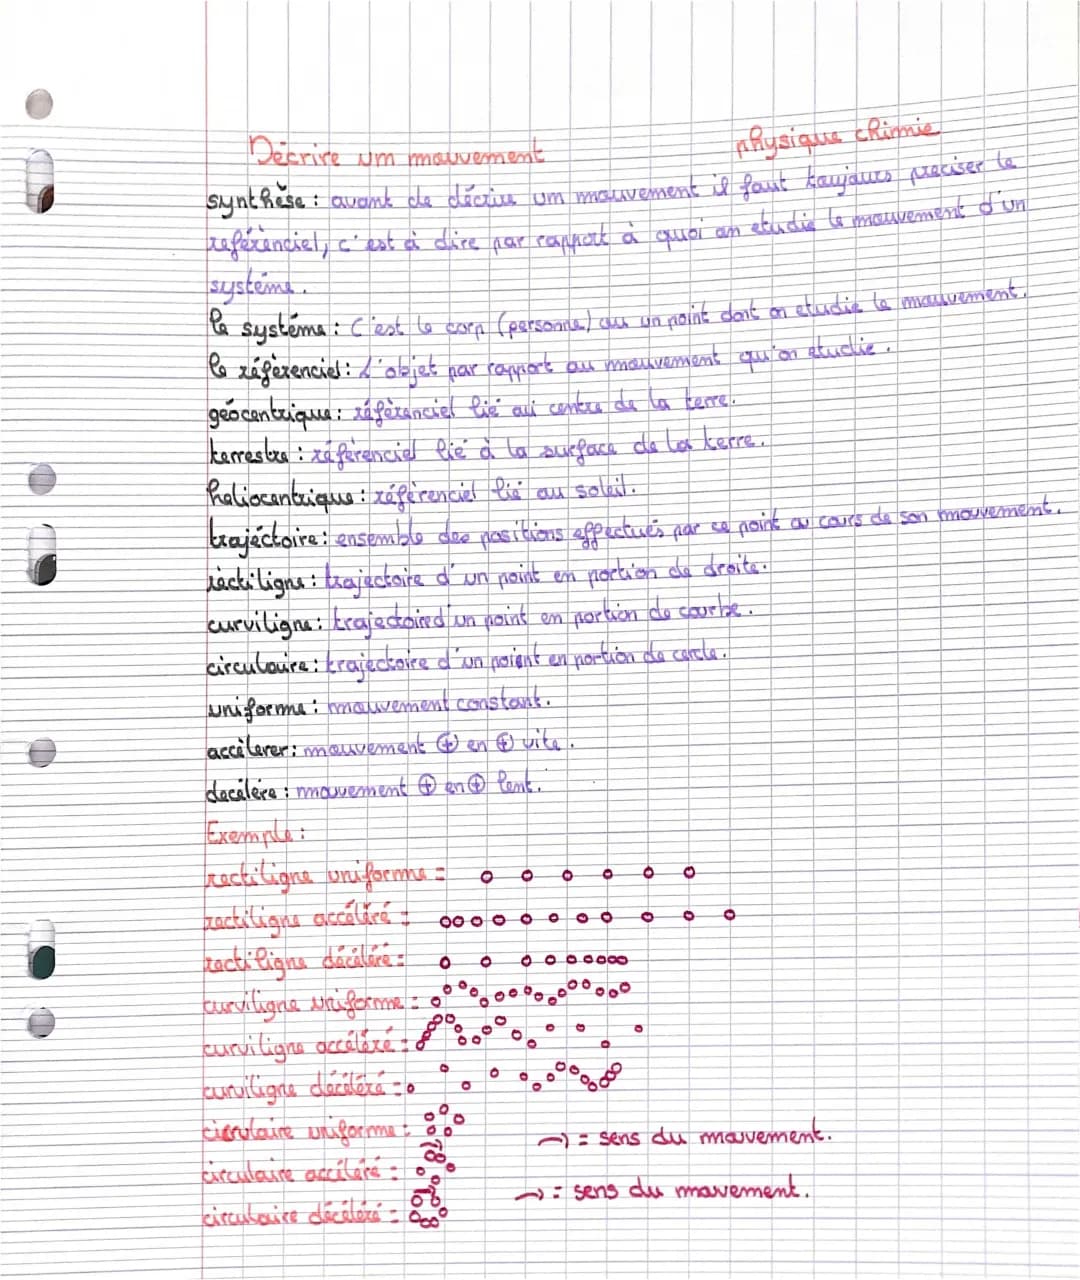 Décrire um mouvement
physique chimie
synthèse : avant de décrire um mouvement il faut toujours preciser le
reférènciel, c'est à dire par rapport à quoi on etudie le mouvement d'un
systéme.
le systéme : C'est le corp (personne) ou un point dont on etudie le mouvement.
le réfèrenciel : L'objet par rapport au mouvement qu'on etudie.
géocentrique : référenciel lié au centre de la terre.
terrestre : référenciel lié à la surface de la terre.
héliocentrique : référenciel lié au soleil.
trajéctoire : ensemble des positions effectués par ce point au cours de son mouvement.
réctiligne : trajectoire d'un point en portion de droite.
curviligne : trajectoire d'un point en portion de courbe.
circulaire : trajectoire d'un point en portion de cercle.
uniforme : mouvement constant.
accélerer : mouvement ⊕ en ⊕ vite.
decélére : mouvement ⊕ en ⊕ lent.
Exemple :
rectiligne uniforme =
rectiligne accéléré =
rectiligne décéléré =
curviligne uniforme =
curviligne accéléré =
curviligne décéléré =
circulaire uniforme =
→ = sens du mouvement.
circulaire accéléré =
→ = sens du mouvement.
circulaire décéléré =